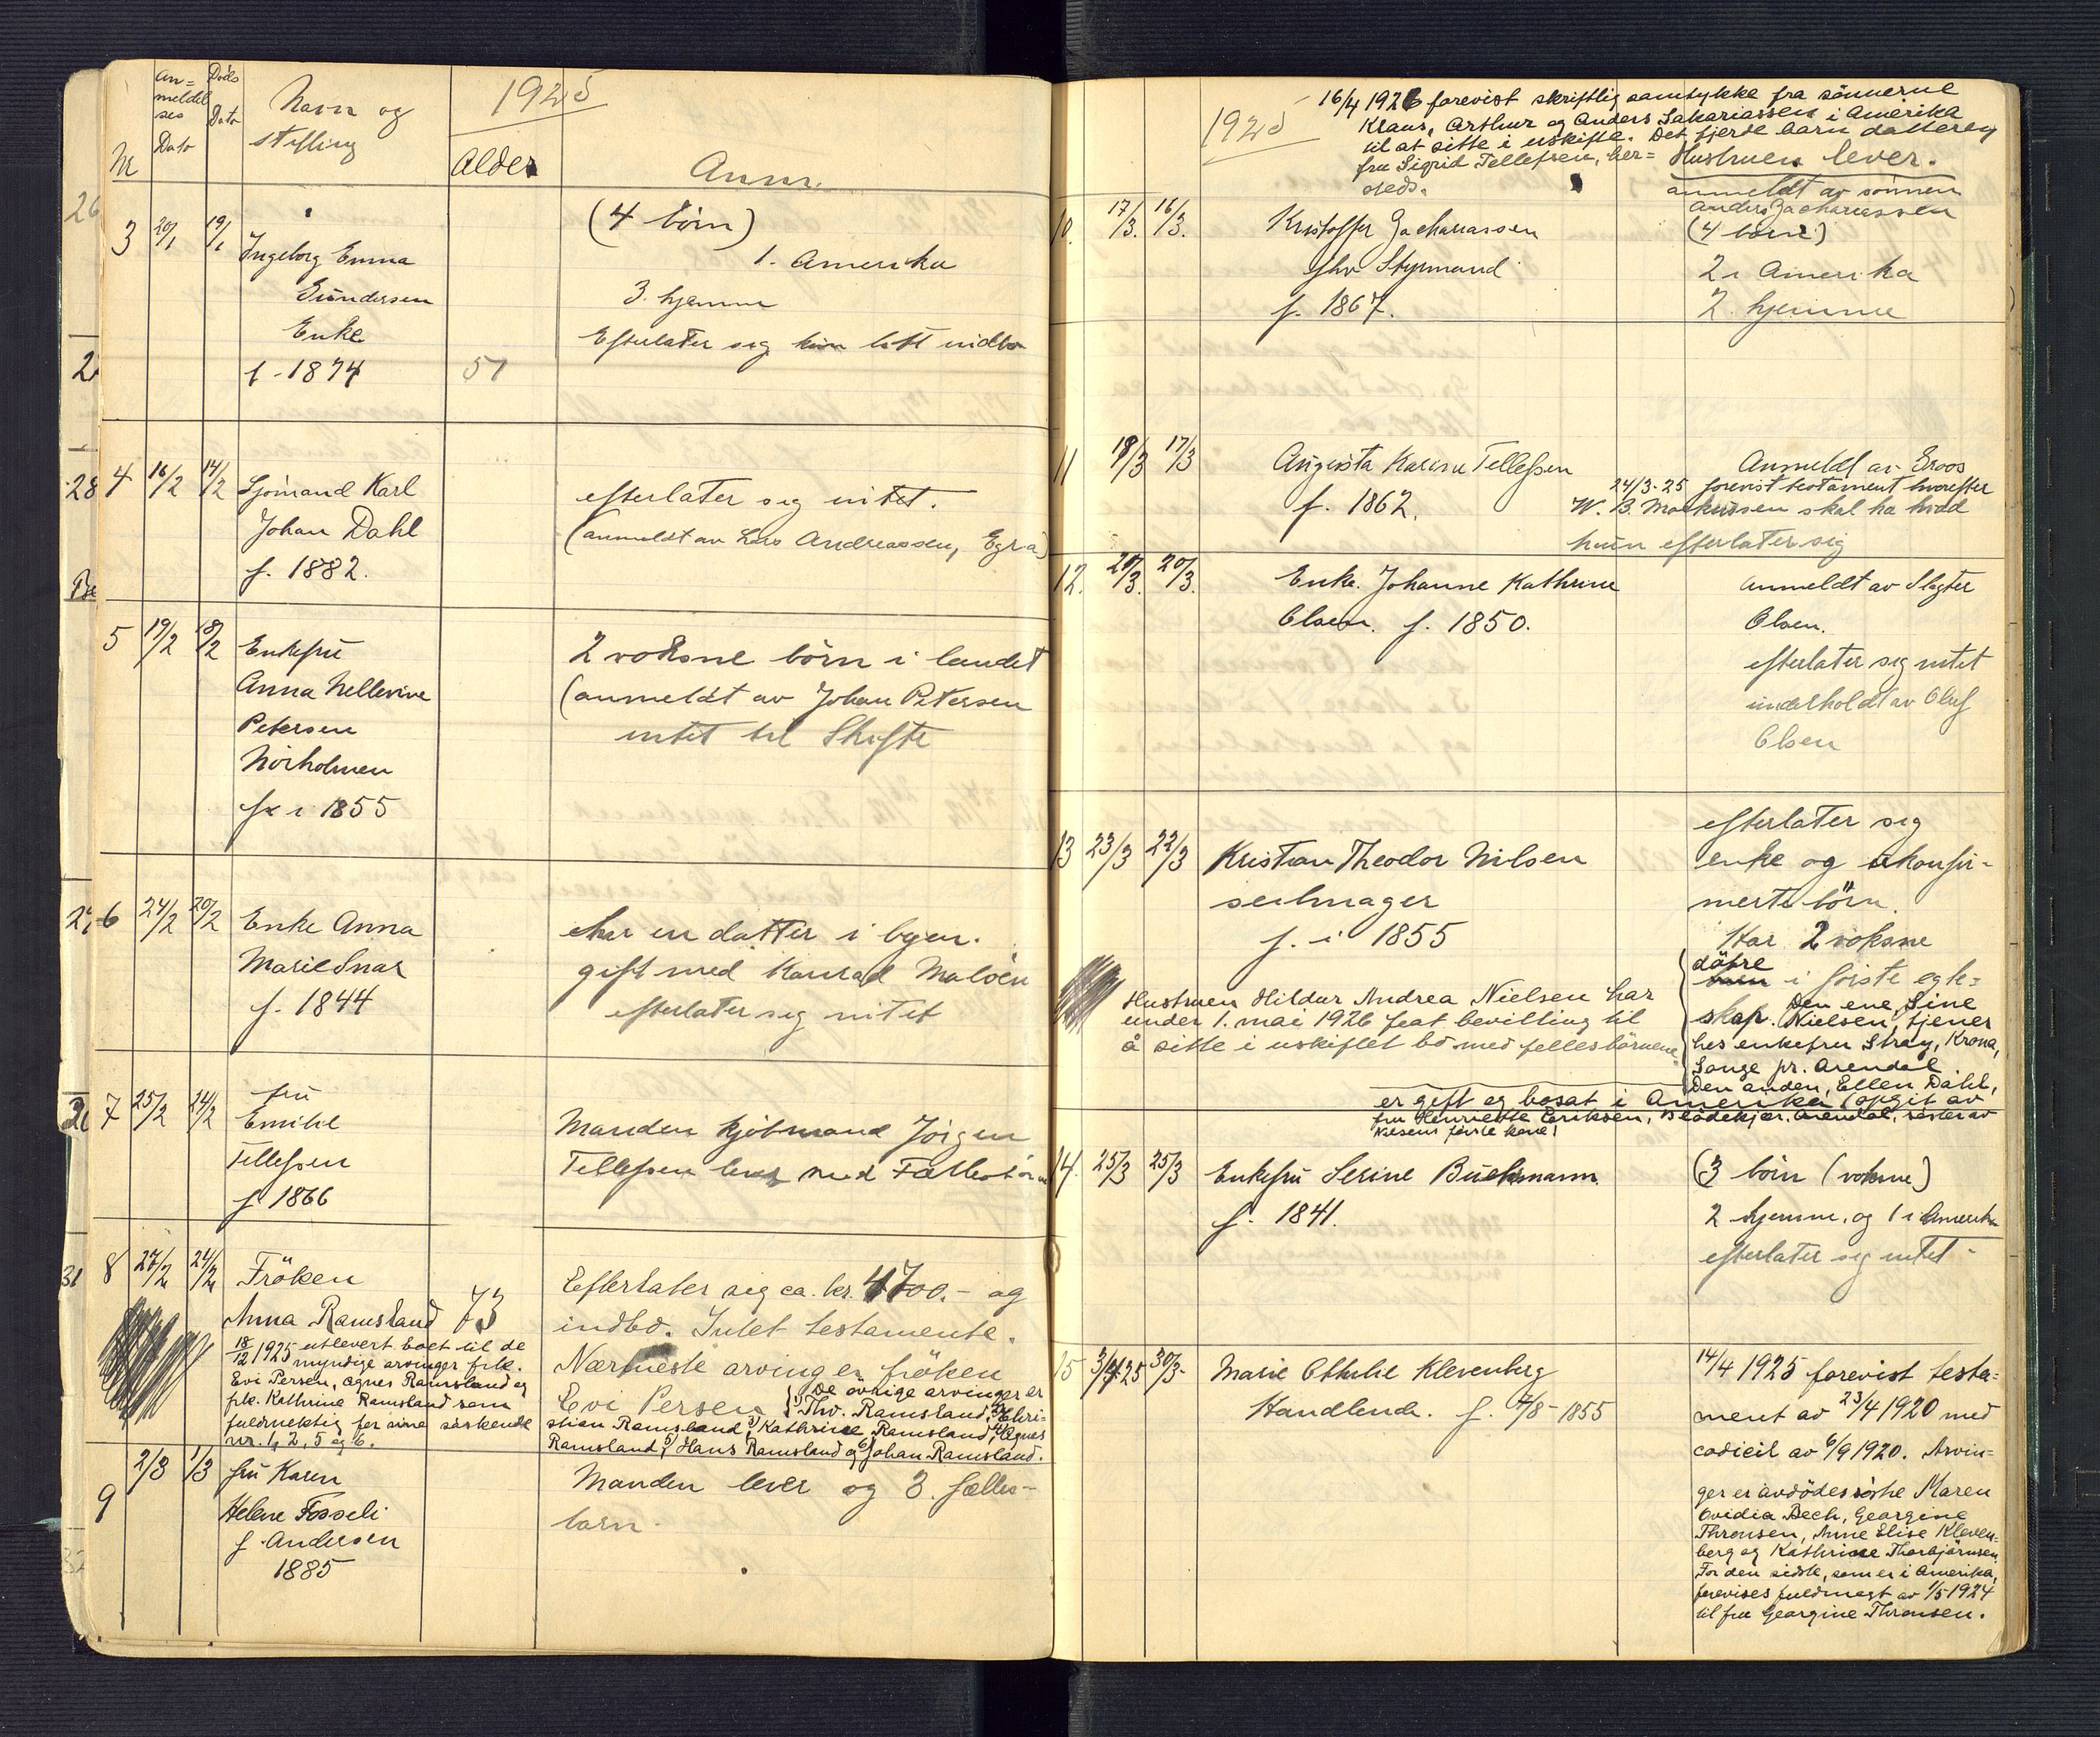 Nr
An=
meldel
ses
Dato
Døds
Dato
Navn og
stilling
1925
Alder
Anm.
3 20/1 19/1
Ingeborg Emma
Gundersen
Enke
f. 1874
51
(4 börn)
1. Amerika
3. hjemme
Efterlater sig kun litt indbo
28
4 16/2 14/2
Sjömand Karl
Johan Dahl
f. 1882.
efterlater sig intet.
(anmeldt av Lars Andreassen, Egra)
5 19/2 18/2
Enkefru
Anna Nellevine
Petersen
Nörholmen
fx i 1855
2 voksne börn i landet
(anmeldt av Johan Petersen
intet til Skifte
6 24/2 20/2
Enke Anna
Marie Snar
f. 1844
har en datter i byen.
gift med Konrad Malöen
efterlater sig intet
7 25/2 24/2
fru
Emilie
Tellefsen
f 1866
Manden kjöbmand Jörgen
Tellefsen lever med Fællesbörn
31
8 27/2 24/2
Fröken
Anna Ramsland
73
18/12 1925 utlevert boet til de
myndige arvinger frk.
Evi Persen, Agnes Ramsland og
frk. Kathrine Ramsland som
fuldmektig for sine söskende
nr. 1, 2, 5 og 6.
Efterlater sig ca. kr. 4700.- og
indbo. Intet testamente.
Nærmeste arving er fröken
Evi Persen
De övrige arvinger er
1) Thv. Ramsland, 2) Chri-
stian Ramsland, 3) Kathrine Ramsland, 4) Agnes
Ramsland, 5) Hans Ramsland og 6) Johan Ramsland.
9 2/3 1/3
fru Karen
Helene Fosseli
f. Andersen
1885
Manden lever og 3. fælles-
barn.
1925
16/4 1926 forevist skriftlig samtykke fra sönnerne
Klaus, Arthur og Anders Sakariassen i Amerika
til at sitte i uskifte. Det fjerde barn datteren
fru Sigrid Tellefsen, her=
steds.
Hustruen lever.
anmeldt av sönnen
Anders Zachariassen
10. 17/3. 16/3.
Kristoffer Zachariassen
fhv Styrmand
f. 1867.
(4 börn)
2 i Amerika
2 hjemme
11 18/3 17/3
Augusta Karine Tellefsen
f. 1862.
Anmeldt av Eroos
24/3-25 forevist testament hvorefter
W. B. Markussen skal ha hvad
hun efterlater sig
12. 20/3. 20/3.
Enke. Johanne Kathrine
Olsen. f. 1850.
Anmeldt av Slagter
Olsen.
efterlater sig intet
underholdt av Oluf
Olsen
13 23/3 22/3
Kristian Theodor Nilsen
seilmager
f. i 1855
efterlater sig
enke og ukonfir-
merte börn.
Har 2 voksne
dötre
barn i förste egte=
skap. Den ene, Sine
Nielsen, tjener
hos enkefru Stray, Krona,
Songe pr. Arendal.
Den anden, Ellen Dahl,
er gift og bosat i Amerika (opgit av
fru Henriette Eriksen, Blödekjær, Arendal, söster av
Nilsens förste kone)
Hustruen Hildur Andrea Nielsen har
under 1. mai 1926 feat bevilling til
å sitte i uskiftet bo med fellesbörnene
14. 25/3 25/3
Enkefru Serine Buchmann.
f. 1841.
(3 börn (voksne)
2 hjemme, og 1 i Amerika
efterlater sig intet -
15 31/3 25 30/3-
Marie Othilie Klevenberg
Handlende. f. 7/8-1855
14/4 1925 forevist testa=
ment av 23/4 1920 med
codicil av 6/9 1920. Arvin=
ger er avdödes söstre Maren
Ovidia Bech, Georgine
Thronsen, Anne Elise Kleven-
berg og Kathrine Thorbjörnsen.
For den sidste, som er i Amerika,
forevises fuldmagt av 1/5 1924
til fru Georgine Thronsen.